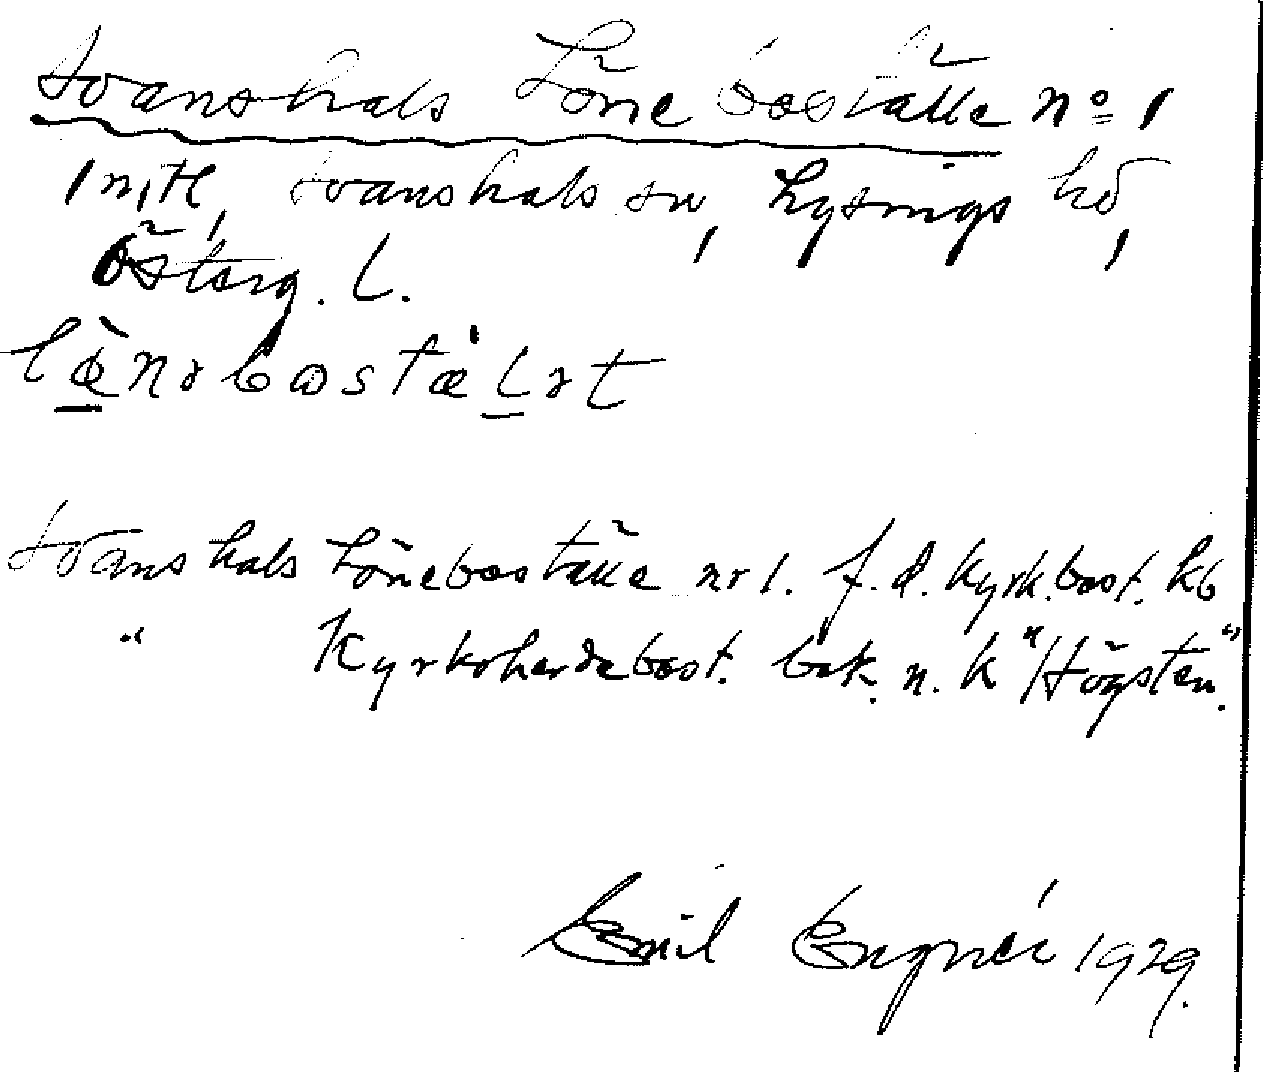 Svanshals Löneboställe nº 1
1 mtl, Svanshals sn, Lysings hd,
Österg. L.
Svanshals Löneboställe nr 1. f. d. Kyrk.bost. kb
" Kyrkoherdebost. bek. n. k "Högsten".
Emil Engné 1929.